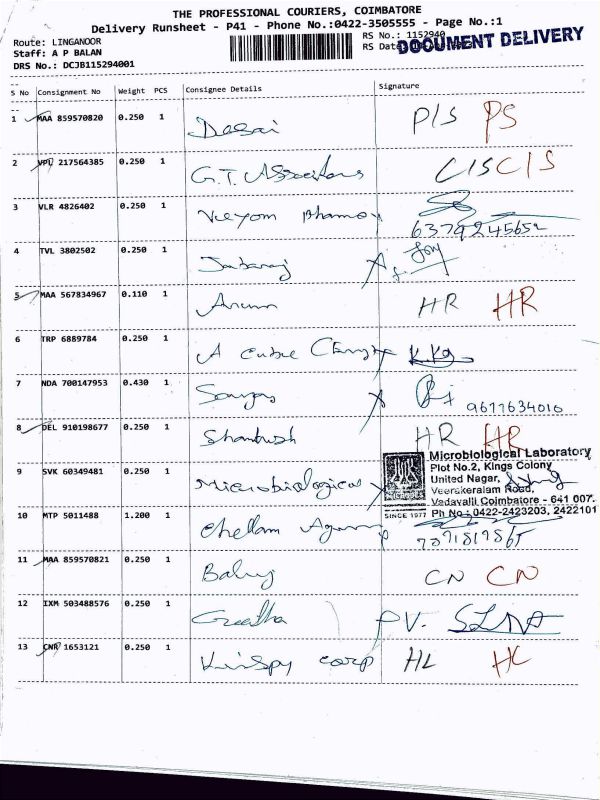 THE PROFESSIONAL COURIERS, COIMBATORE
Delivery Runsheet - P41 - Phone No.:0422-3505555 - Page No.:1
Route: LINGANOOR
RS No.: 1152940
Staff: A P BALAN
RS Date
DOCUMENT DELIVERY
DRS No.: DCJB115294001
S No Consignment No Weight PCS Consignee Details Signature
1 MAA 859570820 0.250 1 Desai P/S PS
2 VPI 217564385 0.250 1 G.T. C/S C/S
3 VLR 4826402 0.250 1
6379245652
4 TVL 3802502 0.250 1
5 MAA 567834967 0.110 1 Arun HR HR
6 TRP 6889784 0.250 1 A cube
7 NDA 700147953 0.430 1 9677634016
8 DEL 910198677 0.250 1 HR HR
9 SVK 60349481 0.250 1 Microbiological
Microbiological Laboratory
Plot No.2, Kings Colony
United Nagar,
Veerakeralam Road,
Vadavalli Coimbatore - 641 007.
SINCE 1977 Ph No.: 0422-2423203, 2422101
10 MTP 5011488 1.200 1 Chellam
11 MAA 859570821 0.250 1 CN CN
12 IXM 503488576 0.250 1 Geetha PV.
13 CNR 1653121 0.250 1 Krispy corp HL HL